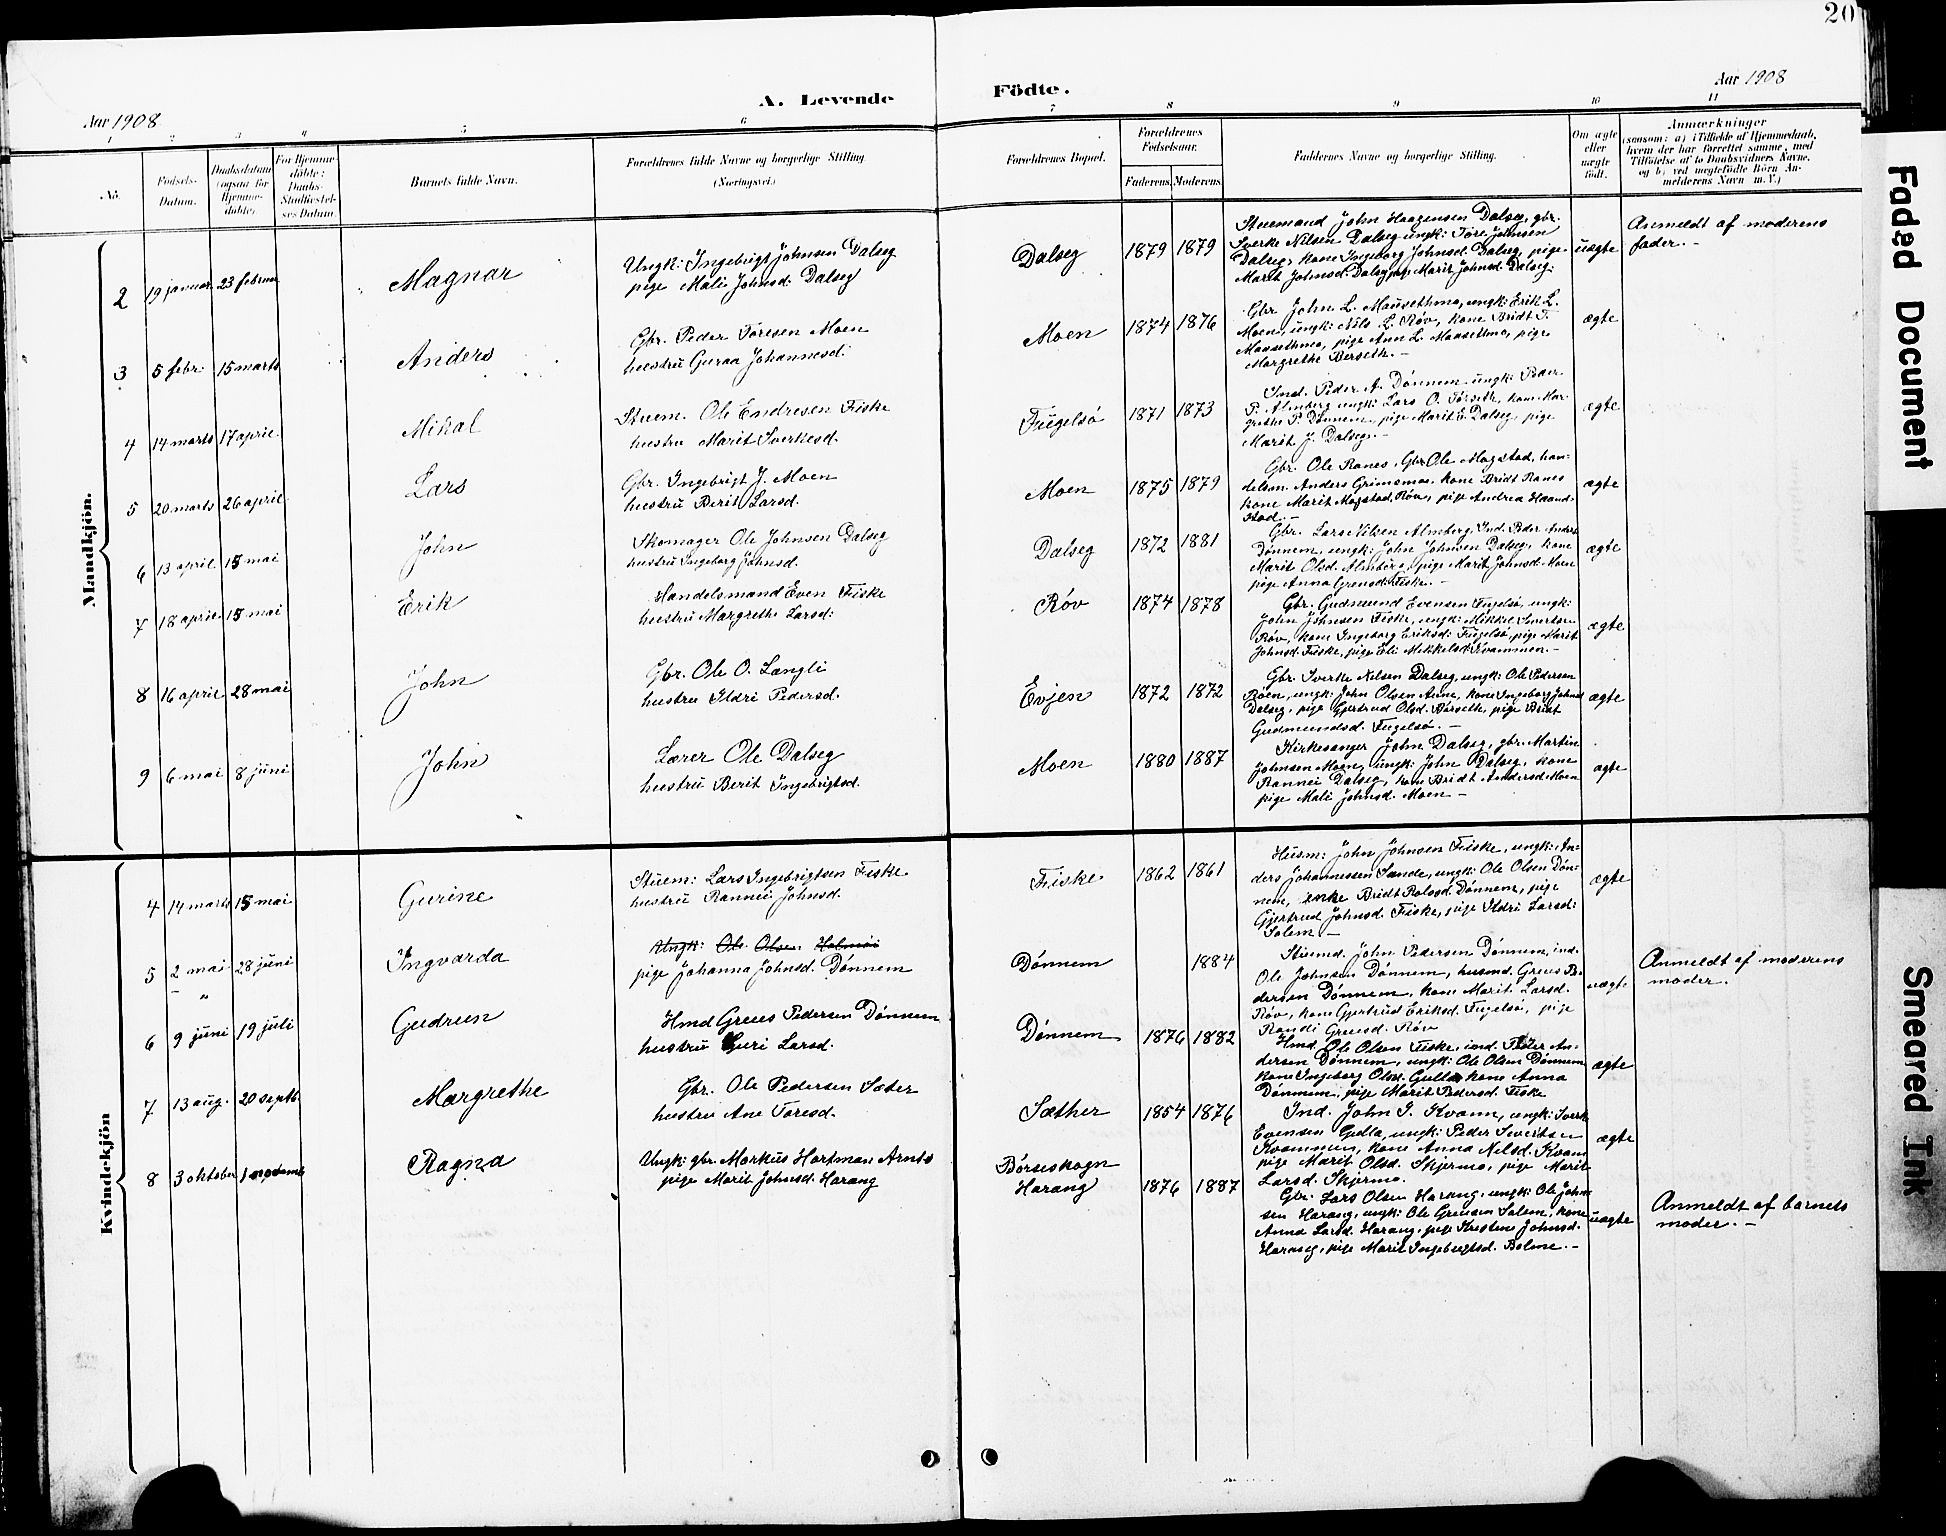 20
Aar 1908
A. Levende Födte.
Aar 1908
1 2 3 4 5 6 7 8 9 10 11
No.
Fødsels-
Datum.
Daabsdatum
(ogsaa for
Hjemme-
døbte)
For Hjemme-
døbte:
Daabs-
Stadfæstel-
ses Datum.
Barnets fulde Navn.
Forældrenes fulde Navne og borgerlige Stilling.
(Næringsvei.)
Forældrenes Bopæl.
Forældrenes
Fødselsaar.
Faderens. Moderens.
Faddernes Navne og borgerlige Stilling.
Om ægte
eller
uægte
født.
Anmærkninger
(saasom: a) i Tilfælde af Hjemmedaab,
hvem der har forrettet samme, med
Tilføielse af to Daabsvidners Navne,
og b) ved uægtefödte Börn An-
melderens Navn m. V.)
Mandkjön.
2
19 januar
23 februar
Magnar
Ungk: Ingebrigt Johnsen Dalseg
pige Mali Johnsd. Dalseg
Dalseg
1879
1879
Stuemand John Haagensen Dalseg, gbr.
Sverke Nilsen Dalseg ungk: Tore Johnsen
Dalseg, kone Ingeborg Johnsd. Dalseg, pige
Marit Johnsd. Dalseg, pige Marit Johnsd. Dalseg.
uægte
Anmeldt af moderens
fader. -
3
5 febr.
15 marts
Anders
Gbr. Peder Toresen Moen
hustru Guraa Johannesd.
Moen
1874
1876
Gbr John L. Mausethmo, ungk: Erik L.
Moen, ungk: Nils L. Røv, kone Bridt T.
Mausethmo, pige Ann L. Mausethmo, pige
Margrethe Berseth. -
ægte
4
14 marts
17 april.
Mikal
Stuem. Ole Endresen Fiske
hustru Marit Sverkesd.
Fugelsö
1871
1873
Ind. Peder A. Dönnem ungk: Peder
P. Almberg ungk: Lars O. Börseth, kone Mar-
grethe P. Dönnem, pige Marit E. Dalseg, pige
Marit J. Dalseg. -
ægte
5
20 marts
26 april.
Lars
Gbr. Ingebrigt J. Moen
hustru Berit Larsd.
Moen
1875
1879
Gbr. Ole Ranes, Gbr Ole Mogstad, han-
delsm. Anders Grimsmo, kone Bridt Ranes
kone Marit Mogstad, Röv, pige Andrea Haand-
stad. -
ægte
6
13 april
15 mai
John
Skomager Ole Johnsen Dalseg
hustru Ingeborg Johnsd.
Dalseg
1872
1881
Gbr. Lars Nilsen Almberg, Ind. Peder Anders
Dönnem, ungk: John Johnsen Dalseg, kone
Marit Olsd. Almberg, pige Marit Johnsd. Moen
pige Anna Gruesd. Fiske. -
ægte
7
18 april.
15 mai
Erik
Handelsmand Even Fiske
hustru Margrethe Larsd:
Röv
1874
1878
Gbr. Gudmund Evensen Fugelsö, ungk:
John Johnsen Fiske, ungk: Mikkel Sivertsen
Röv, kone Ingeborg Eriksd. Fugelsö, pige Marit
Johnsd. Fiske, pige Eli Mikkelsd. Kvammen. -
ægte
8
16 april
28 mai
John
Gbr. Ole O. Langli
hustru Ildri Pedersd.
Evjen
1872
1872
Gbr. Sverke Nilsen Dalseg, ungk: Ole Pedersen
Röen, ungk: John Olsen Aune, kone Ingeborg Johnsd
Dalseg, pige Gjertrud Olsd. Börseth, pige Bridt
Gudmundsd. Fugelsö. -
ægte
9
6 mai
8 juni
John
Lærer Ole Dalseg
hustru Berit Ingebrigtsd.
Moen
1880
1887
Kirkesanger John Dalseg, gbr. Martin
Johnsen Moen, ungk: John Dalseg, kone
Rannei Dalseg, kone Bridt Andersd. Moen
pige Mali Johnsd. Moen -
ægte
Kvindekjön
4
14 marts
15 mai
Gurine
Stuem: Lars Ingebrigtsen Fiske
hustru Rannei Johnsd.
Fiske
1862
1861
Husm: John Johnsen Fiske, ungk: An-
ders Johannessen Sande, ungk: Ole Olsen Dön-
nem, enke Bridt Rolsd. Dönnem, pige
Gjertrud Johnsd. Fiske, pige Ildri Larsd:
Solem -
ægte
5
2 mai
28 juni
Ingvarda
Ungk: Ole Olsen Holmöi
pige Johanna Johnsd. Dönnem
Dönnem
1884
Stuemd. John Pedersen Dönnem, ind.
Ole Johnsen Dönnem, husmd. Grues Pe-
dersen Dönnem, kone Marit Larsd.
Röv, kone Gjertrud Eriksd. Fugelsö, pige
Randi Gruesd. Röv
uægte
Anmeldt af moderens
moder.
6
9 juni
19 juli
Gudrun
Hmd Grues Pedersen Dönnem
hustru Guri Larsd.
Dönnem
1876
1882
Hmd. Ole Olsen Fiske, ind. Peder An-
dersen Dönnem, ungk: Ole Olsen Dönnem
kone Ingeborg Olsd. Gulla, kone Anna
Dönnem, pige Marit Pedersd. Fiske
ægte
7
13 aug.
20 septb.
Margrethe
Gbr. Ole Pedersen Sæter
hustru Ane Toresd.
Sæther
1854
1876
Ind. John I. Kvam, ungk: Sverke
Evensen Gulla, ungk: Peder Sivertsen
Kvammen, kone Anna Nilsd. Kvam
pige Marit Olsd. Skjermo, pige Marit
Larsd. Skjermo.
ægte
8
3 oktober
1 novemb
Ragna
Ungk: gbr. Markus Hartman Arnts
pige Marit Johnsd. Harang
Börseskogn
Harang
1876
1887
Gbr. Lars Olsen Harang, ungk: Ole John-
sen Harang, ungk: Ole Gruesen Solem, kone
Anna Larsd. Harang, pige Kristine Johnsd.
Harang, pige Marit Ingebrigtsd. Bolme. -
uægte
Anmeldt af barnets
moder. -
Faded Document
Smeared Ink